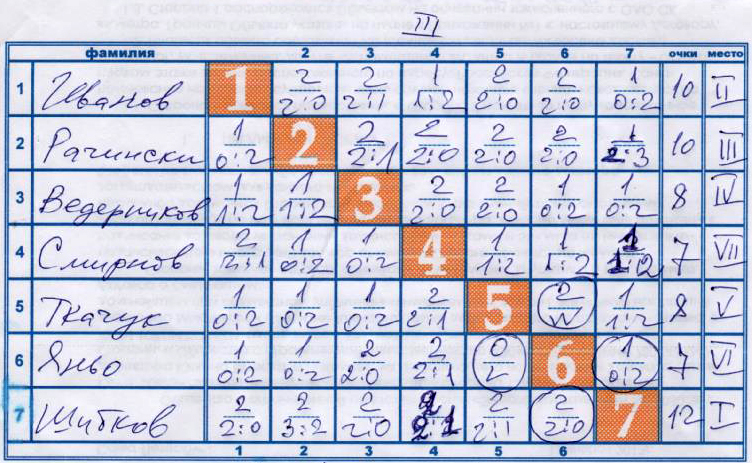 III
фамилия 2 3 4 5 6 7 очки место
1 Иванов 1 2 2:0 2 2:1 1 1:2 2 2:0 2 2:0 1 0:2 10 II
2 Рачински 1 0:2 2 2 2:1 2 2:0 2 2:0 2 2:0 1 2:3 10 III
3 Ведерников 1 1:2 1 1:2 3 2 2:0 2 2:0 1 0:2 1 0:2 8 IV
4 Смирнов 2 2:1 1 0:2 1 0:2 4 1 1:2 1 1:2 1 1:2 7 VII
5 Ткачук 1 0:2 1 0:2 1 0:2 2 2:1 5 2 W 1 1:2 8 V
6 Яньо 1 0:2 1 0:2 2 2:0 2 2:1 0 L 6 1 0:2 7 VI
7 Шитков 2 2:0 2 3:2 2 2:0 2 2:1 2 2:1 2 2:0 7 12 I
1 2 3 4 5 6